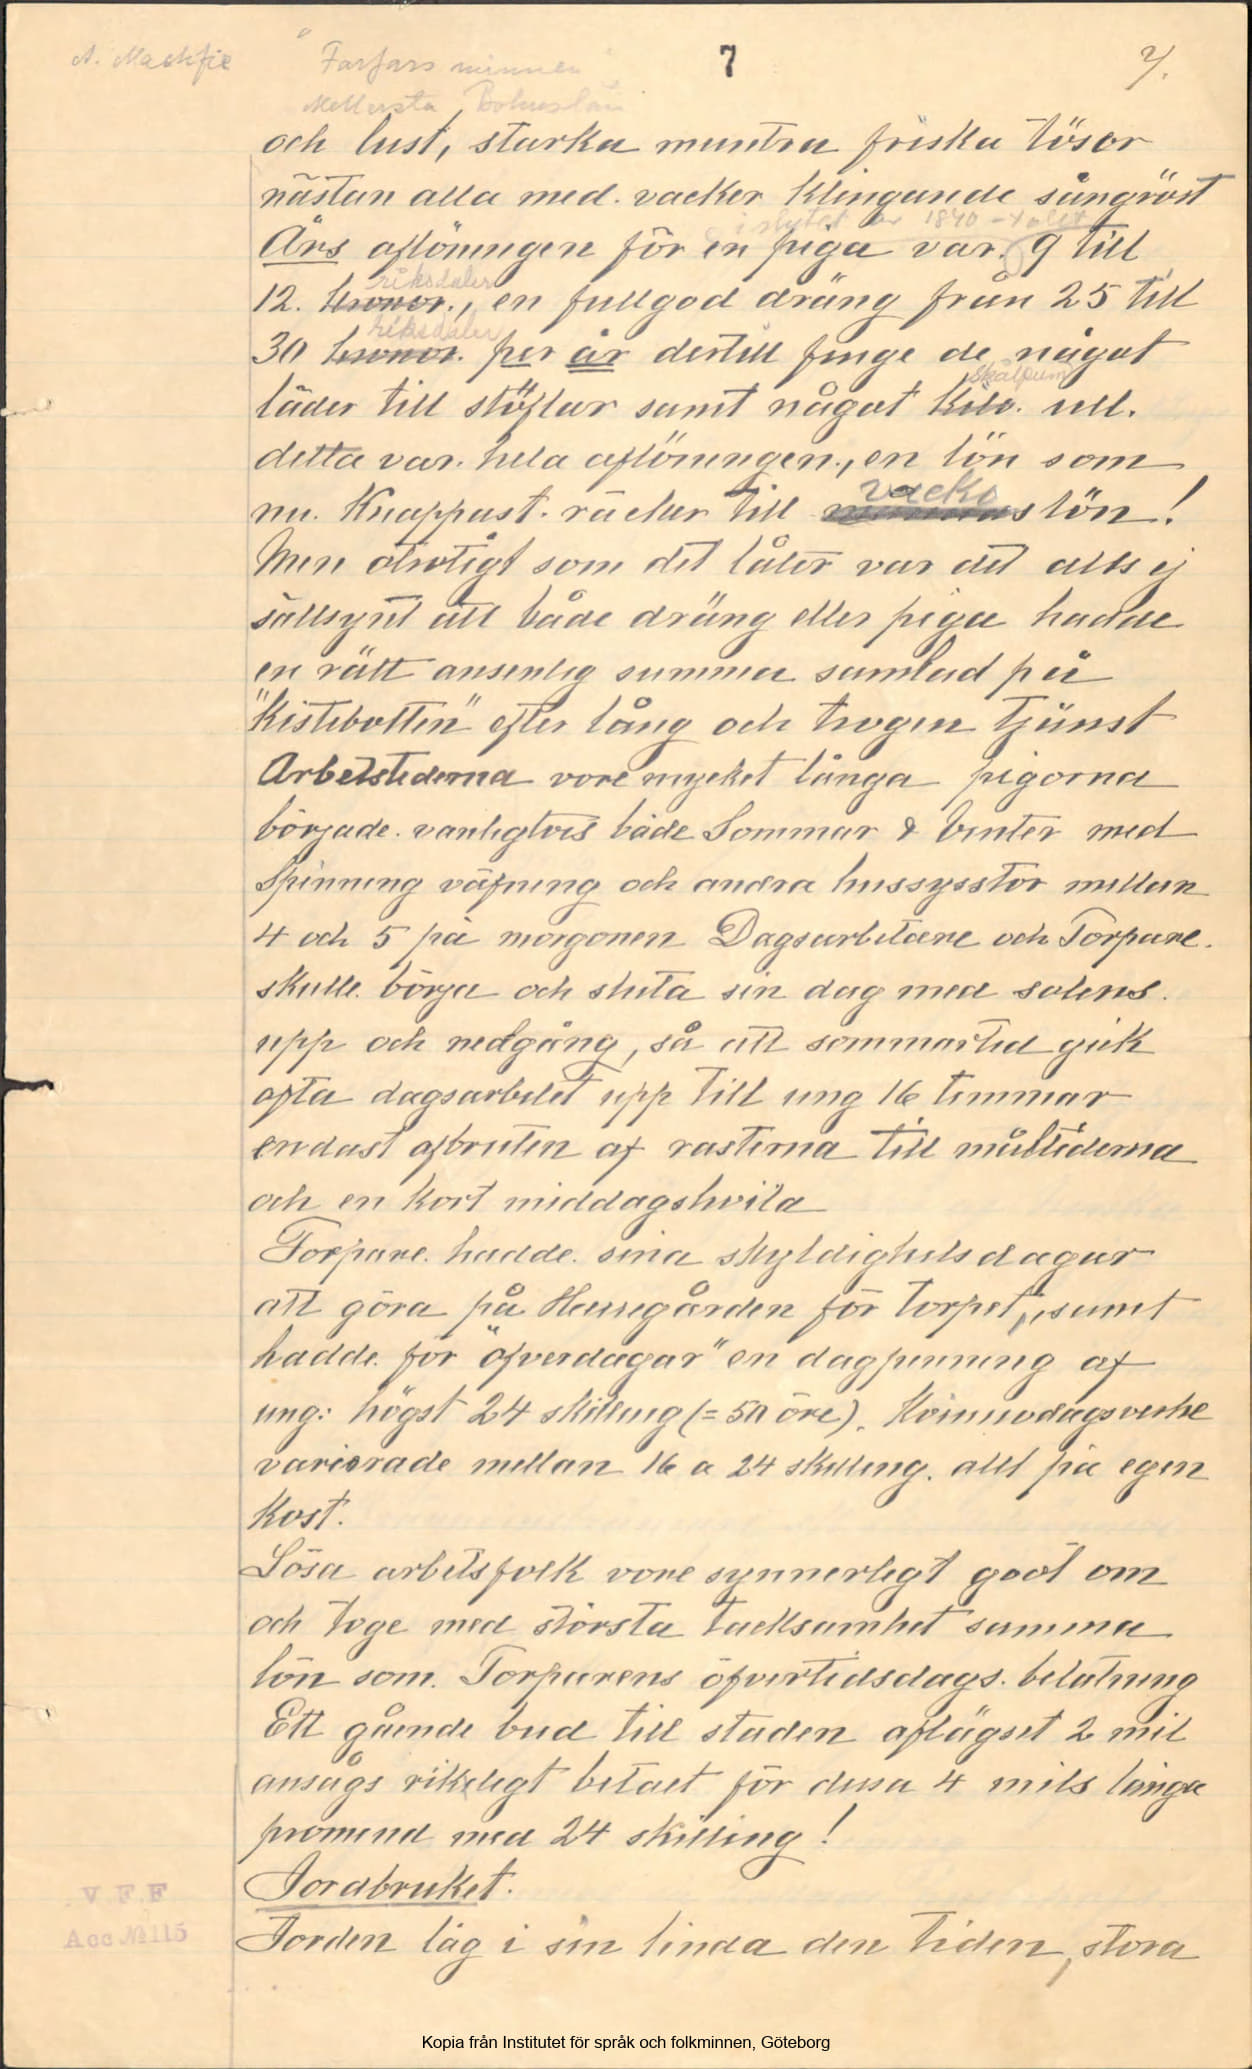 A. Mackfie " Farfars minnen 7 7.
Mellersta Bohuslän
och lust, starka muntra friska tösor
nästan alla med. vacker klingande sångröst
i slutet av 1840-talet
Års aflöningen för en piga var. 9 till
riksdaler
12. kronor., en fullgod dräng från 25 till
riksdaler
30 kronor. per år dertill finge de något
skålpund
läder till stöflar samt något kilo. ull.
detta var. hela aflöningen., en lön som
vecko
nu. knappast. räcker till slön!
Men otroligt som det låter var det alls ej
sällsynt att både dräng eller piga hadde
en rätt ansenlig summa samlad på
"Kistebotten" efter lång och trogen tjänst
Arbetstiderna vore mycket långa pigorna
började. vanligtvis både Sommar & Vinter med
Spinning väfning och andra hussysslor mellan
4 och 5 på morgonen Dagsarbetare och Torpare.
skulle. börja och sluta sin dag med solens.
upp och nedgång, så att sommartid gick
ofta dagsarbetet upp till ung 16 timmar
endast afbruten af rasterna till måltiderna
och en kort middagshvila
Torpare. hadde. sina skyldighetsdagar
att göra på Herregården för torpet, samt
hadde. för "öfverdagar" en dagpenning af
ung: högst 24 skilling (= 50 öre). Kvinnodagsverke
varierade mellan 16 a 24 skilling. allt på egen
Kost.
Lösa arbetsfolk vore synnerligt godt om
och toge med största tacksamhet samma
lön som. Torparens öfvertidsdags. betalning
Ett gående bud till staden aflägset 2 mil
ansågs rikeligt betalt för dessa 4 mils långa
promenad med 24 skilling!
Jordbruket.
Jorden låg i sin linda den tiden, stora
V. F. F
Acc № 115
Kopia från Institutet för språk och folkminnen, Göteborg